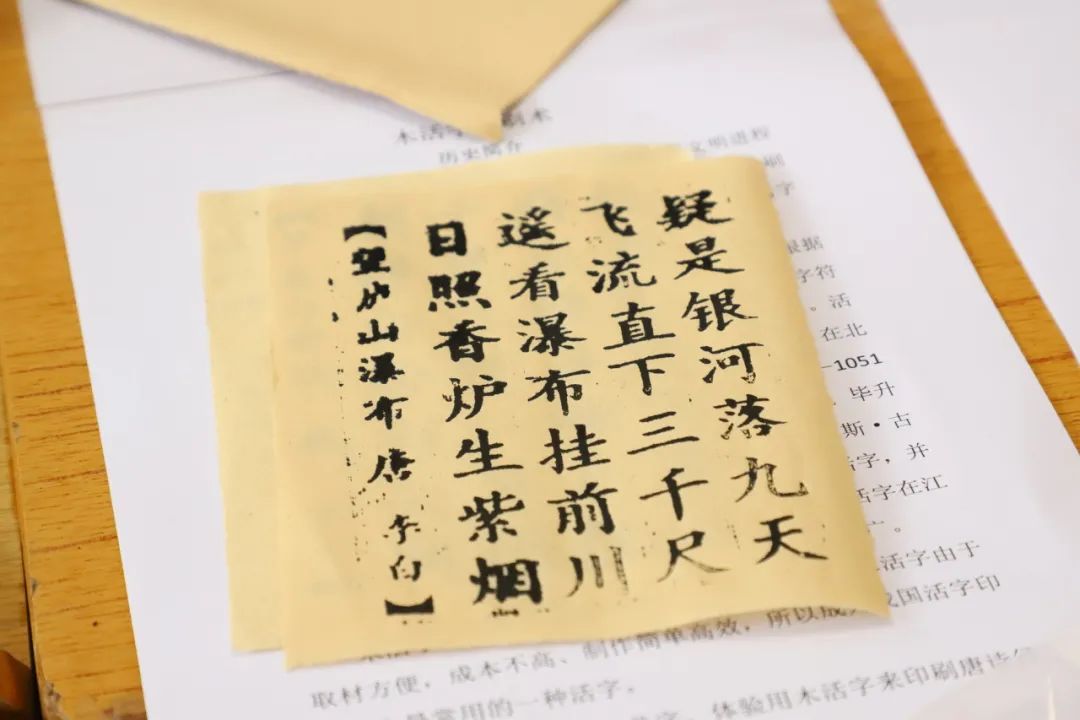 【望庐山瀑布 唐 李白】
日照香炉生紫烟
遥看瀑布挂前川
飞流直下三千尺
疑是银河落九天
木活
历史简介
文明进程
刷
字
根据
字符
。活
在北
-1051
毕升
斯·古
字，并
活字在江
。
活字由于
制作简单高效，所以成 国活字印
取材方便，成本不高、
是常用的一种活字。
体验用木活字来印刷唐诗